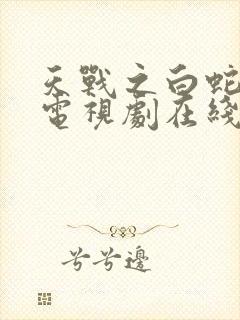 天戰之白蛇
電視劇在綫
兮兮邊